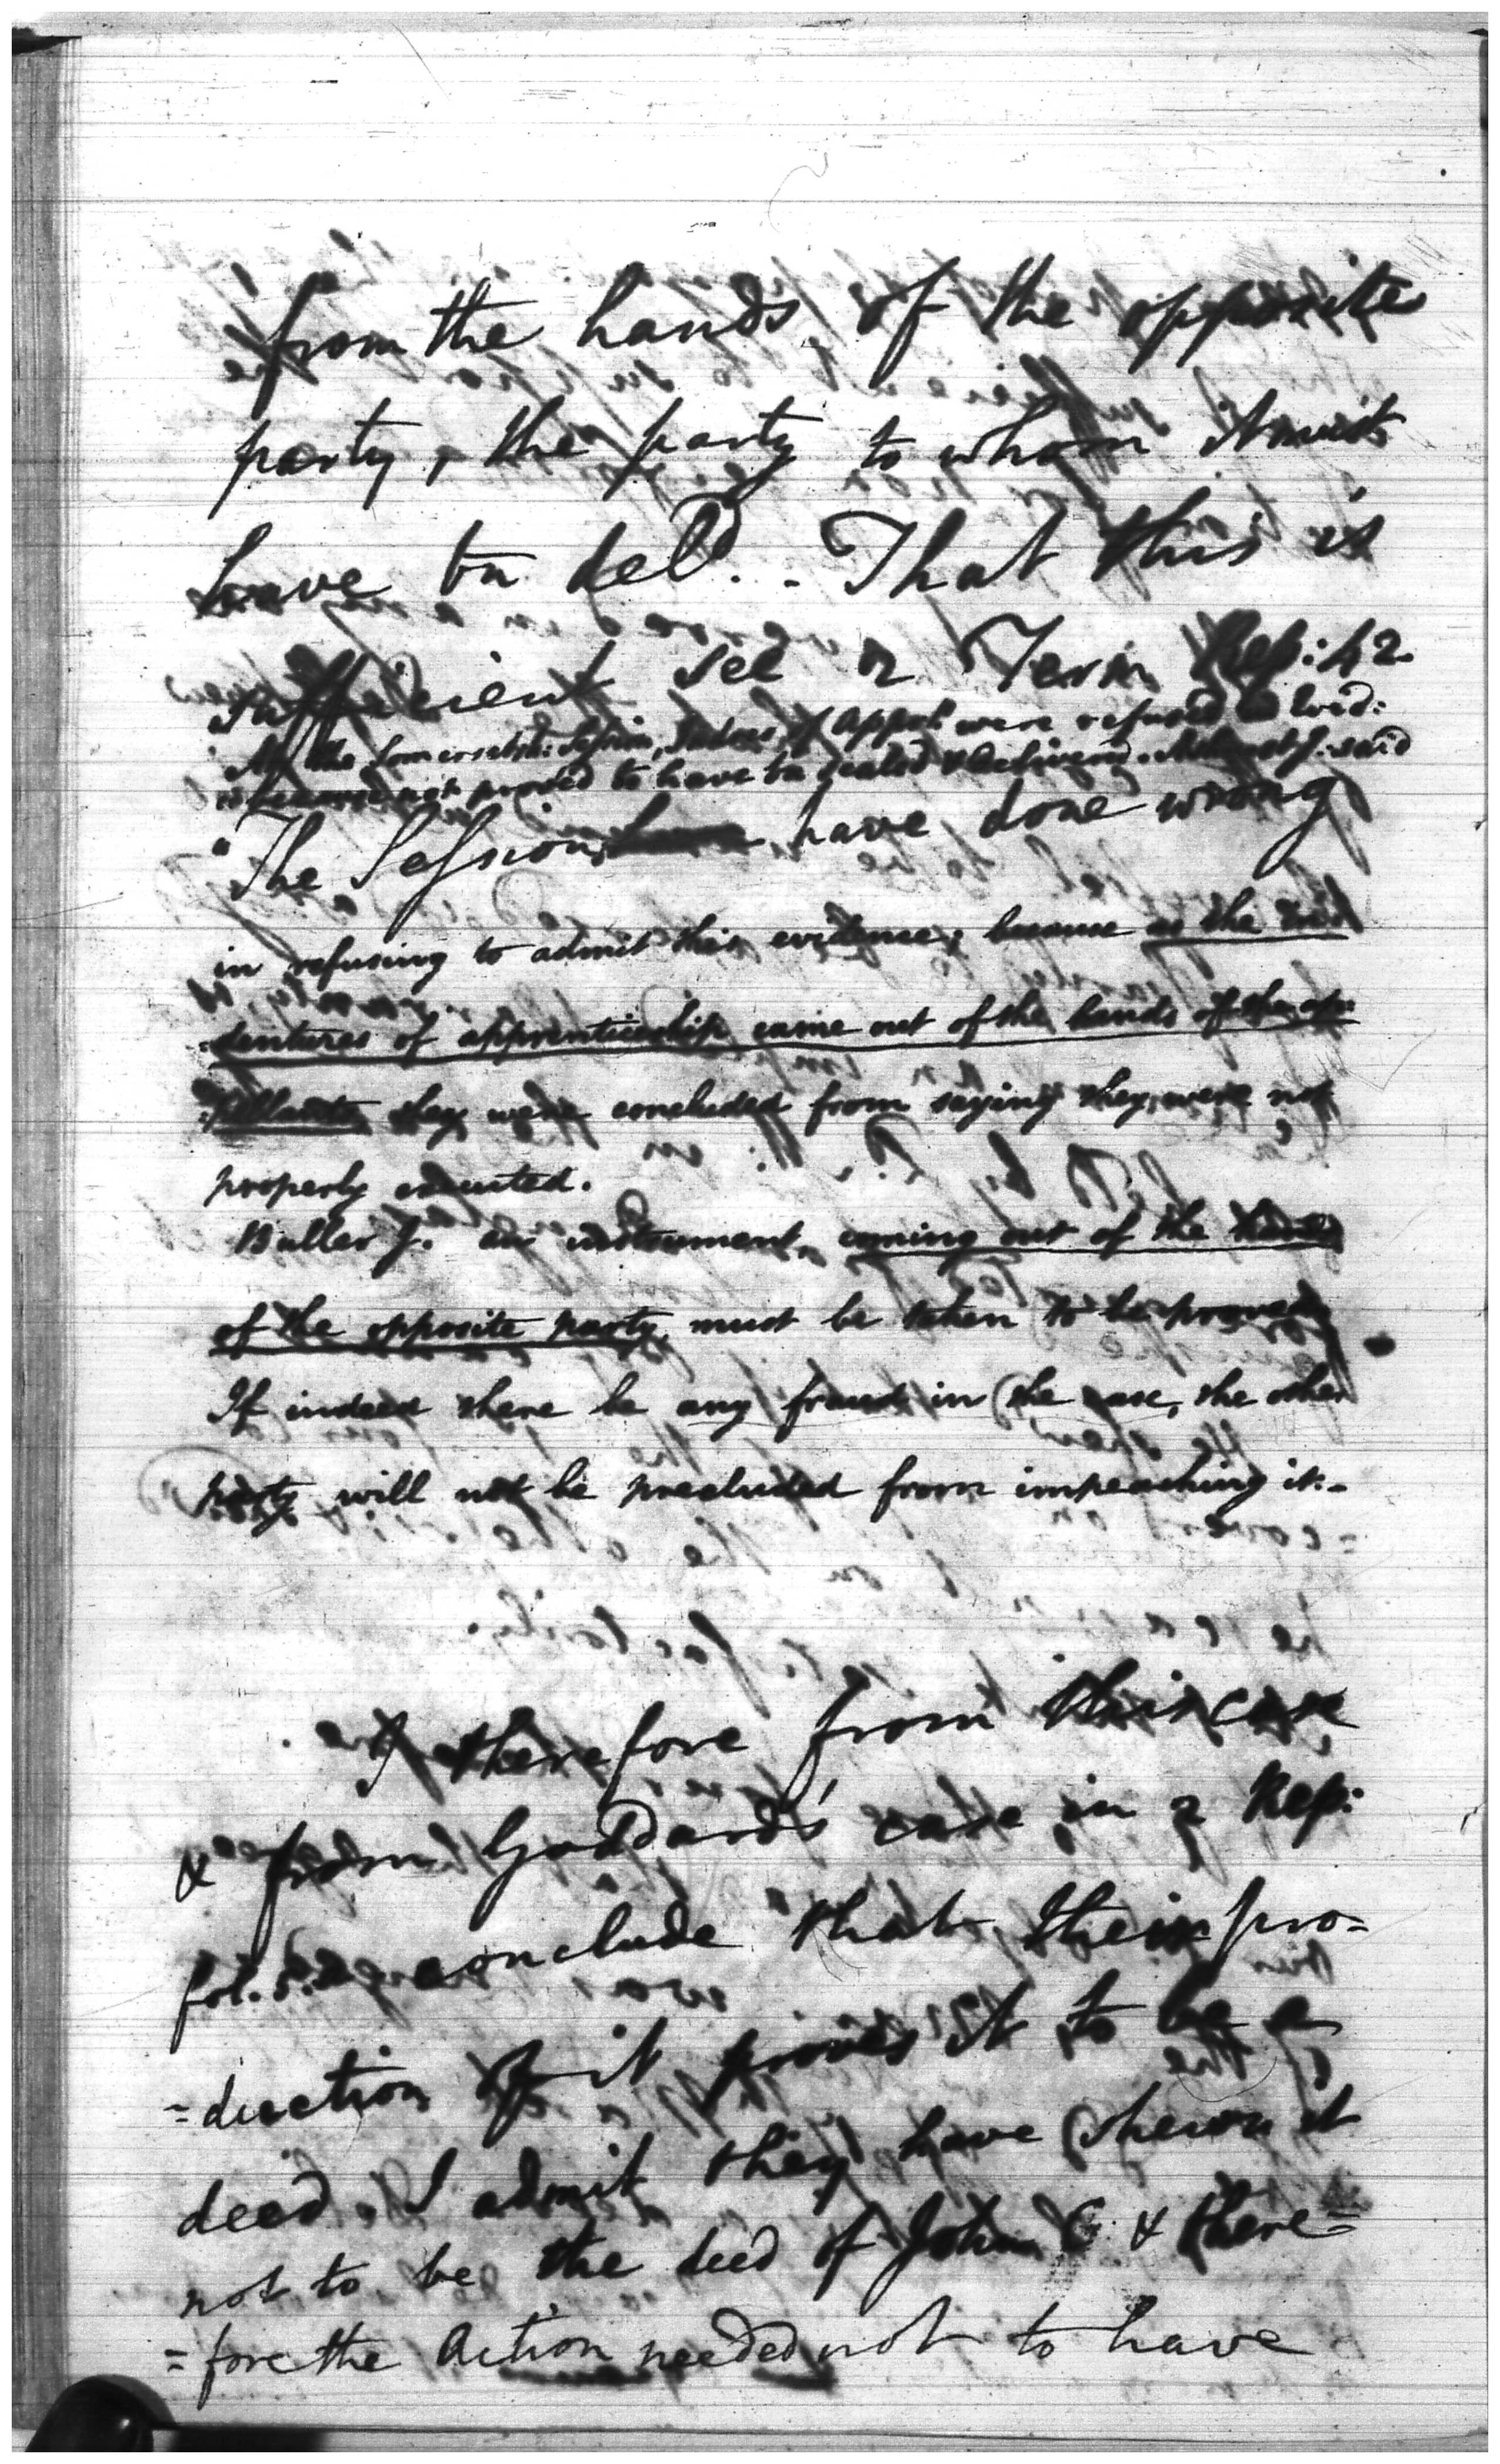 from the hands of the opposite
party, the party to whom it must
have bn deld. - That this is
sufficient see 2 Term Rep: 42.
At the Somersetsh: Session, Indres of appret were refused as Evid:
because not proved to have bn sealed & delivered. Ashurst J. said
"The Sessions have done wrong
in refusing to admit this evidence, because as the in
=dentures of apprenticeship came out of the hands of the ap=
=pellants they were concluded from saying they were not
properly executed.
Buller J. an instrument, coming out of the hands
of the opposite party must be taken to be proved
If indeed there be any fraud in the case, the other
party will not be precluded from impeaching it.-
I therefore from this case
& from Goddard's case in 2 Rep:
fol. 5. conclude that their pro-
=duction of it proves it to be a
deed. I admit they have shewn it
not to be the deed of John C & there=
=fore the Action needed not to have